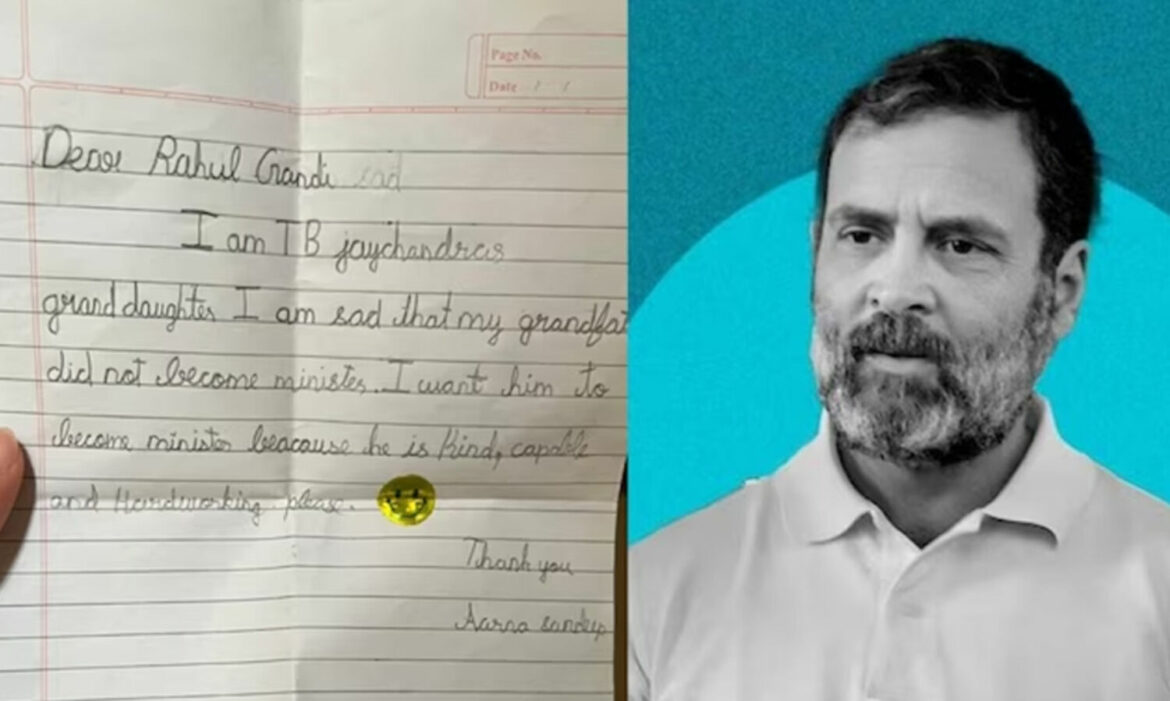 Page No.
Date / /
Dear Rahul Gandi sad
I am T B jaychandras
grand daughter I am sad that my grandfat
did not become minister. I want him to
become minister beacause he is kind, capable
and Hardworking please.
Thank you
Aarna sandeep